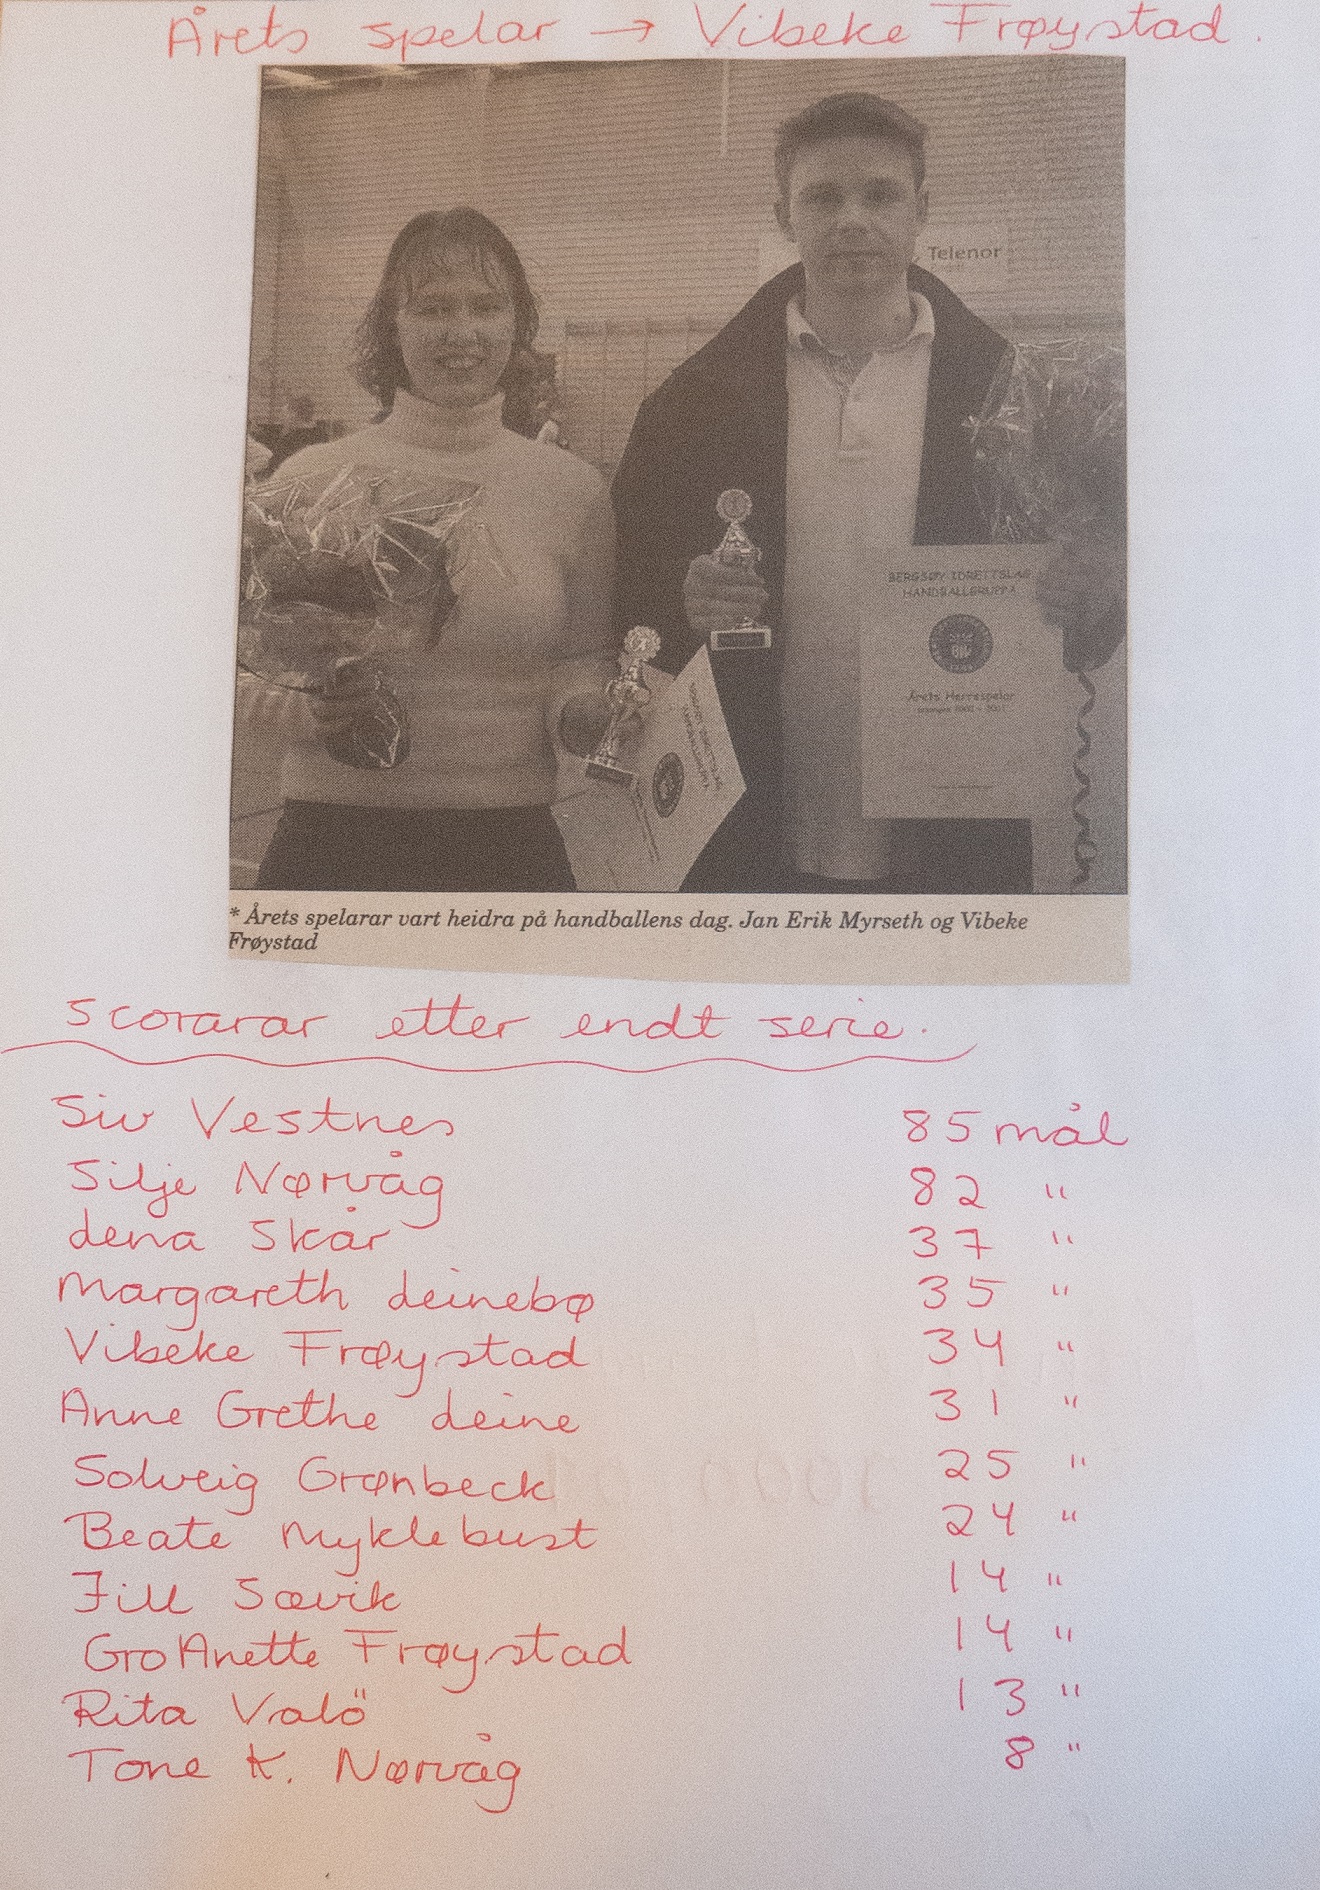 Årets spelar → Vibeke Frøystad.
Telenor
BERGSØY IDRETTSLAG
HANDBALLGRUPPA
Årets Herrespelar
* Årets spelarar vart heidra på handballens dag. Jan Erik Myrseth og Vibeke
Frøystad
Scorarar etter endt serie.
Siv Vestnes 85 mål
Silje Nørvåg 82 "
Lena Skår 37 "
Margareth Leinebø 35 "
Vibeke Frøystad 34 "
Anne Grethe Leine 31 "
Solveig Grønbeck 25 "
Beate Myklebust 24 "
Jill Sævik 14 "
Gro Anette Frøystad 14 "
Rita Valö 13 "
Tone K. Nørvåg 8 "